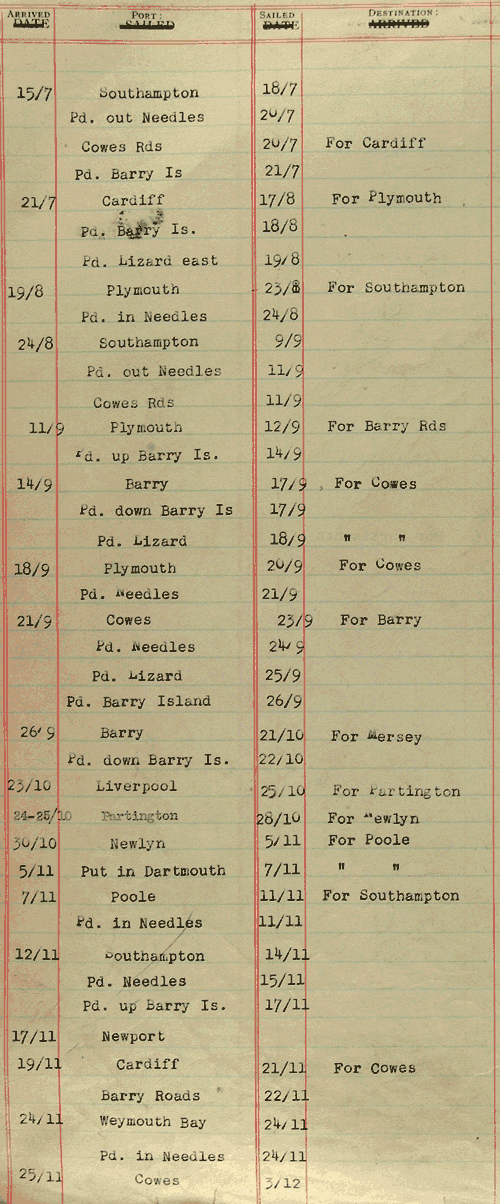 ARRIVED PORT: SAILED DESTINATION:
DATE SAILED DATE ARRIVED
15/7 Southampton 18/7
Pd. out Needles 20/7
Cowes Rds 20/7 For Cardiff
Pd. Barry Is 21/7
21/7 Cardiff 17/8 For Plymouth
Pd. Barry Is. 18/8
Pd. Lizard east 19/8
19/8 Plymouth 23/8 For Southampton
Pd. in Needles 24/8
24/8 Southampton 9/9
Pd. out Needles 11/9
Cowes Rds 11/9
11/9 Plymouth 12/9 For Barry Rds
Pd. up Barry Is. 14/9
14/9 Barry 17/9 For Cowes
Pd. down Barry Is 17/9
Pd. Lizard 18/9 " "
18/9 Plymouth 20/9 For Cowes
Pd. Needles 21/9
21/9 Cowes 23/9 For Barry
Pd. Needles 24/9
Pd. Lizard 25/9
Pd. Barry Island 26/9
26/9 Barry 21/10 For Mersey
Pd. down Barry Is. 22/10
23/10 Liverpool 25/10 For Partington
24-25/10 Partington 28/10 For Newlyn
30/10 Newlyn 5/11 For Poole
5/11 Put in Dartmouth 7/11 " "
7/11 Poole 11/11 For Southampton
Pd. in Needles 11/11
12/11 Southampton 14/11
Pd. Needles 15/11
Pd. up Barry Is. 17/11
17/11 Newport
19/11 Cardiff 21/11 For Cowes
Barry Roads 22/11
24/11 Weymouth Bay 24/11
Pd. in Needles 24/11
25/11 Cowes 3/12